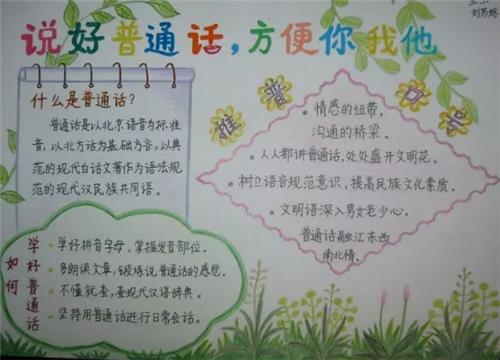 说好普通话,方便你我他
什么是普通话?
普通话是以北京语音为标准
音,以北方话为基础方言,以典
范的现代白话文著作为语法规
范的现代汉民族共同语。
推普口号
情感的纽带,
沟通的桥梁。
人人都讲普通话,处处盛开文明花。
树立语音规范意识,提高民族文化素质。
文明语深入男女老少心,
普通话融汇东西
南北情。
如何
学好普通话
学好拼音字母,掌握发音部位。
多朗读文章,锻炼说普通话的感觉。
不懂就查,查现代汉语辞典。
坚持用普通话进行日常会话。